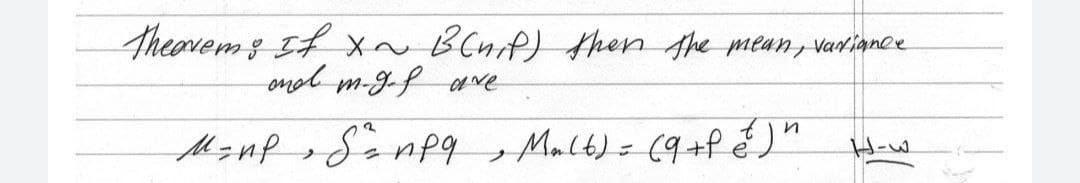 Theorem: If x ~ B(n,p) then the mean, variance
and m.g.f are
M = np , S² = npq , Mₓ(t) = (q + p eᵗ)ⁿ H-w